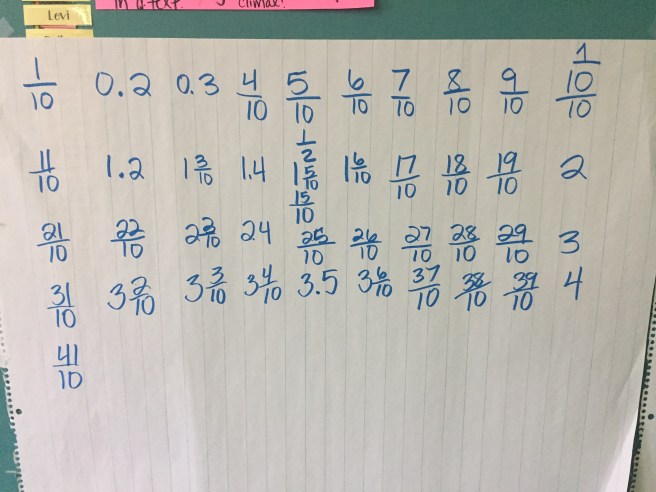 Levi
in a text. climax?
1/10 0.2 0.3 4/10 5/10 6/10 7/10 8/10 9/10 1 10/10
11/10 1.2 1 3/10 1.4 1/2 1 5/10 15/10 1 6/10 17/10 18/10 19/10 2
21/10 22/10 2 3/10 2.4 25/10 26/10 27/10 28/10 29/10 3
31/10 3 2/10 3 3/10 3 4/10 3.5 3 6/10 37/10 38/10 39/10 4
41/10